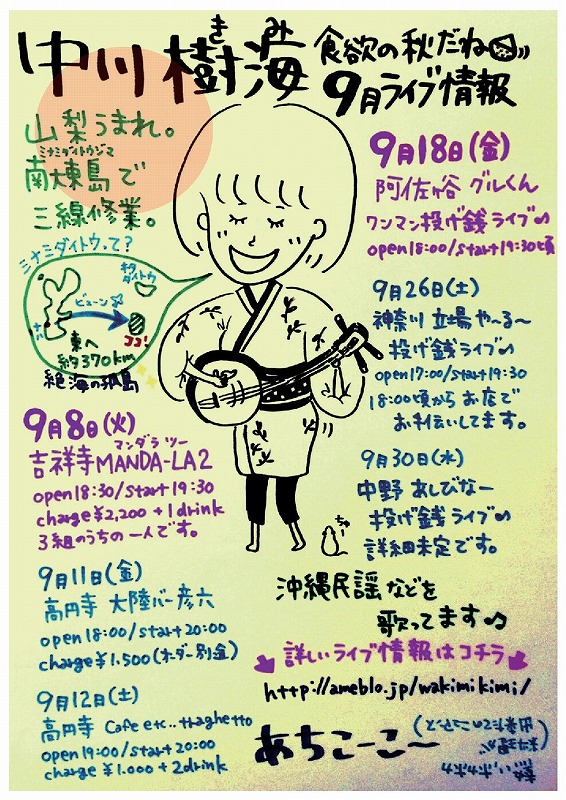 中川 樹海
きみ
食欲の秋だね
9月ライブ情報
山梨うまれ。
ミナミダイトウジマ
南大東島で
三線修業。
ミナミダイトウって?
キタダイトウ
ビューン
ココ!
東へ
約370km
絶海の孤島
9月8日(火)
マンダラ ツー
吉祥寺MANDA-LA2
open18:30/start19:30
charge¥2,200+1drink
3組のうちの一人です。
9月11日(金)
高円寺 大陸バー彦六
open18:00/start20:00
charge¥1.500(オーダー別金)
9月12日(土)
高円寺 Cafe etc..
open19:00/start20:00
charge ¥1.000+2drink
9月18日(金)
阿佐ヶ谷 グルくん
ワンマン投げ銭ライブ♪
open18:00/start19:30頃
9月26日(土)
神奈川 立場や~る~
投げ銭ライブ♪
open17:00/start19:30
18:00頃からお店で
お手伝いしてます。
9月30日(水)
中野 あしびなー
投げ銭ライブ♪
詳細未定です。
ちゅ
沖縄民謡などを
歌ってます♪
詳しいライブ情報はコチラ
http://ameblo.jp/wakimikimi/
あちこーこー